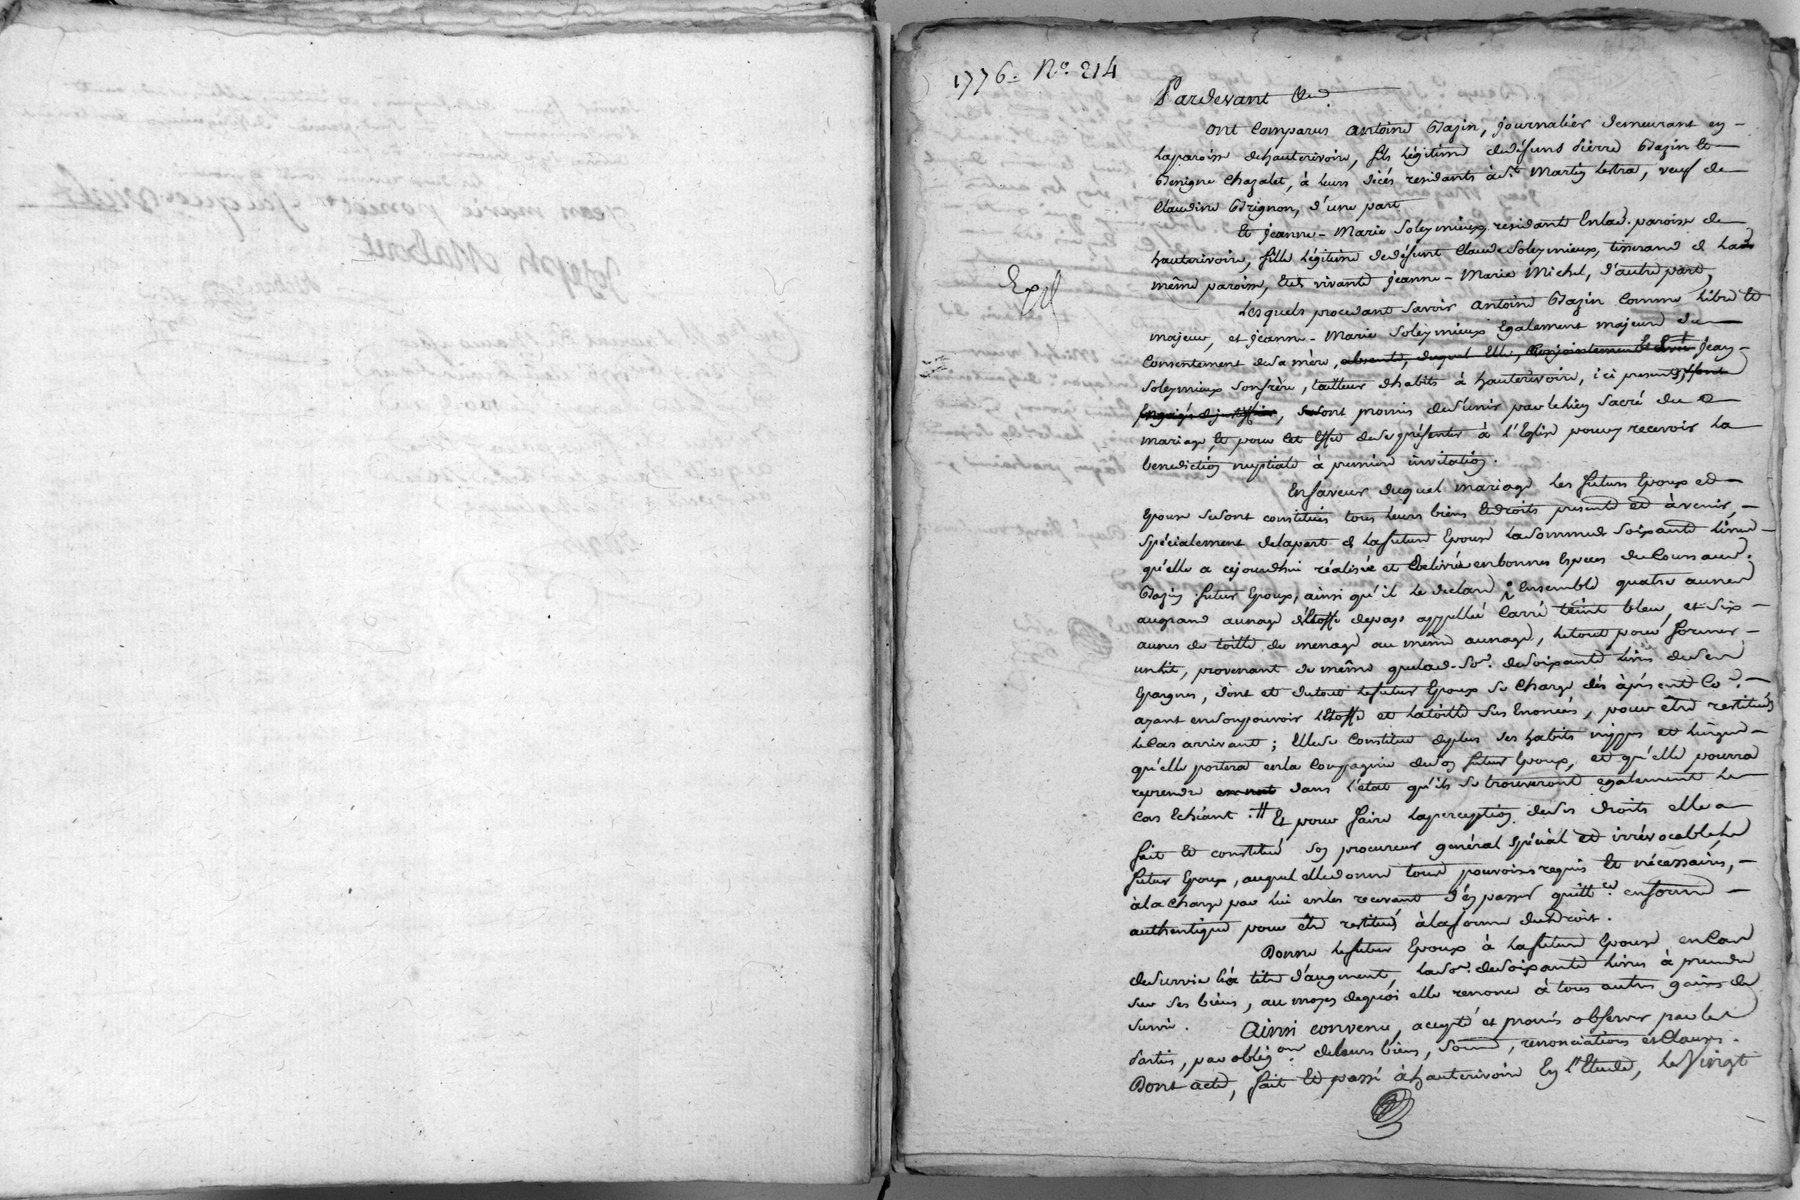 1776. No. 214
Pardevant &a.
ont comparus antoine Bazin, journalier demeurant en
la paroisse dehauterivoire, fils légitime dedéfunts pierre Bazin et
Benigne Chazalet, à leurs décés residants à St Martin Lestra, veuf de
Claudine Brignon, d'une part
Et jeanne-Marie Soleymieux residante Enlad. paroisse de
hauterivoire, fille légitime dedéfunt Claude Soleymieux, tisserand de lad
même paroisse, Et de vivante jeanne-Marie Michel, d'autre part
Lesquels procedant savoir antoine Bazin comme libre Et
majeur, et jeanne-Marie Soleymieux Egalement majeure du
Consentement desa mère, absente, duquel Elle, Conjointement Et avec jean
Soleymieux sonfrère, tailleur dhabits à hauterivoire, ici present
Engagés dejustifier, sesont promis des'unir par lelien sacré du
mariage Et pour Cet Effet dese présenter à l'Eglise pour y recevoir la
benediction nuptiale à premiere invitation.
Enfaveur duquel mariage les futurs Epoux et
Epouse sesont constitués tous leurs biens Etdroits presents et àvenir,
spécialement delapart de lafuture Epouse lasomme de soixante livres
qu'elle a cejourdhui réalisée et délivrée enbonnes Espèces deCours aud.
Bazin futur Epoux, ainsi qu'il le declare, Ensemble quatre aunes
augrand aunage d'étoffe depays appellée Carré teint bleu, et six
aunes de toille de menage au même aunage, letout pour former
unlit, provenant de même quelad. So. desoixante livres deses
Epargnes, dont et dutout lefutur Epoux se charge dés àprésent Co.
ayant ensonpouvoir l'Etoffe et latoille sus Enoncées, pour etre restitués
leCas arrivant; Ellese Constitue deplus ses habits nippes et linges
qu'elle portera enla Compagnie deson futur Epoux, et qu'elle pourra
reprendre dans l'état qu'ils se trouveront egalement le
Cas Echéant. # Et pour faire laperception deses droits elle a
fait Et constitué son procureur général spécial et irrévocable le
futur Epoux, auquel elledonne tous pouvoirs requis Et nécessaires,
àlacharge par lui enles recevant d'en passer quitt.ce enforme
authentique pour être restitués àlaforme dudroit.
Donne lefutur Epoux à lafuture Epouse enCas
desurvie Età titre d'augment, laso. desoixante livres à prendre
sur ses biens, au moyen dequoi elle renonce à tous autres gains de
survie. Ainsi convenu, accepté et promis observer par les
Parties, par oblig.on deleurs biens, soumd, renonciations etClauses.
Dont acte, fait Et passé àhauterivoire En l'Etude, le Vingt
Exp.